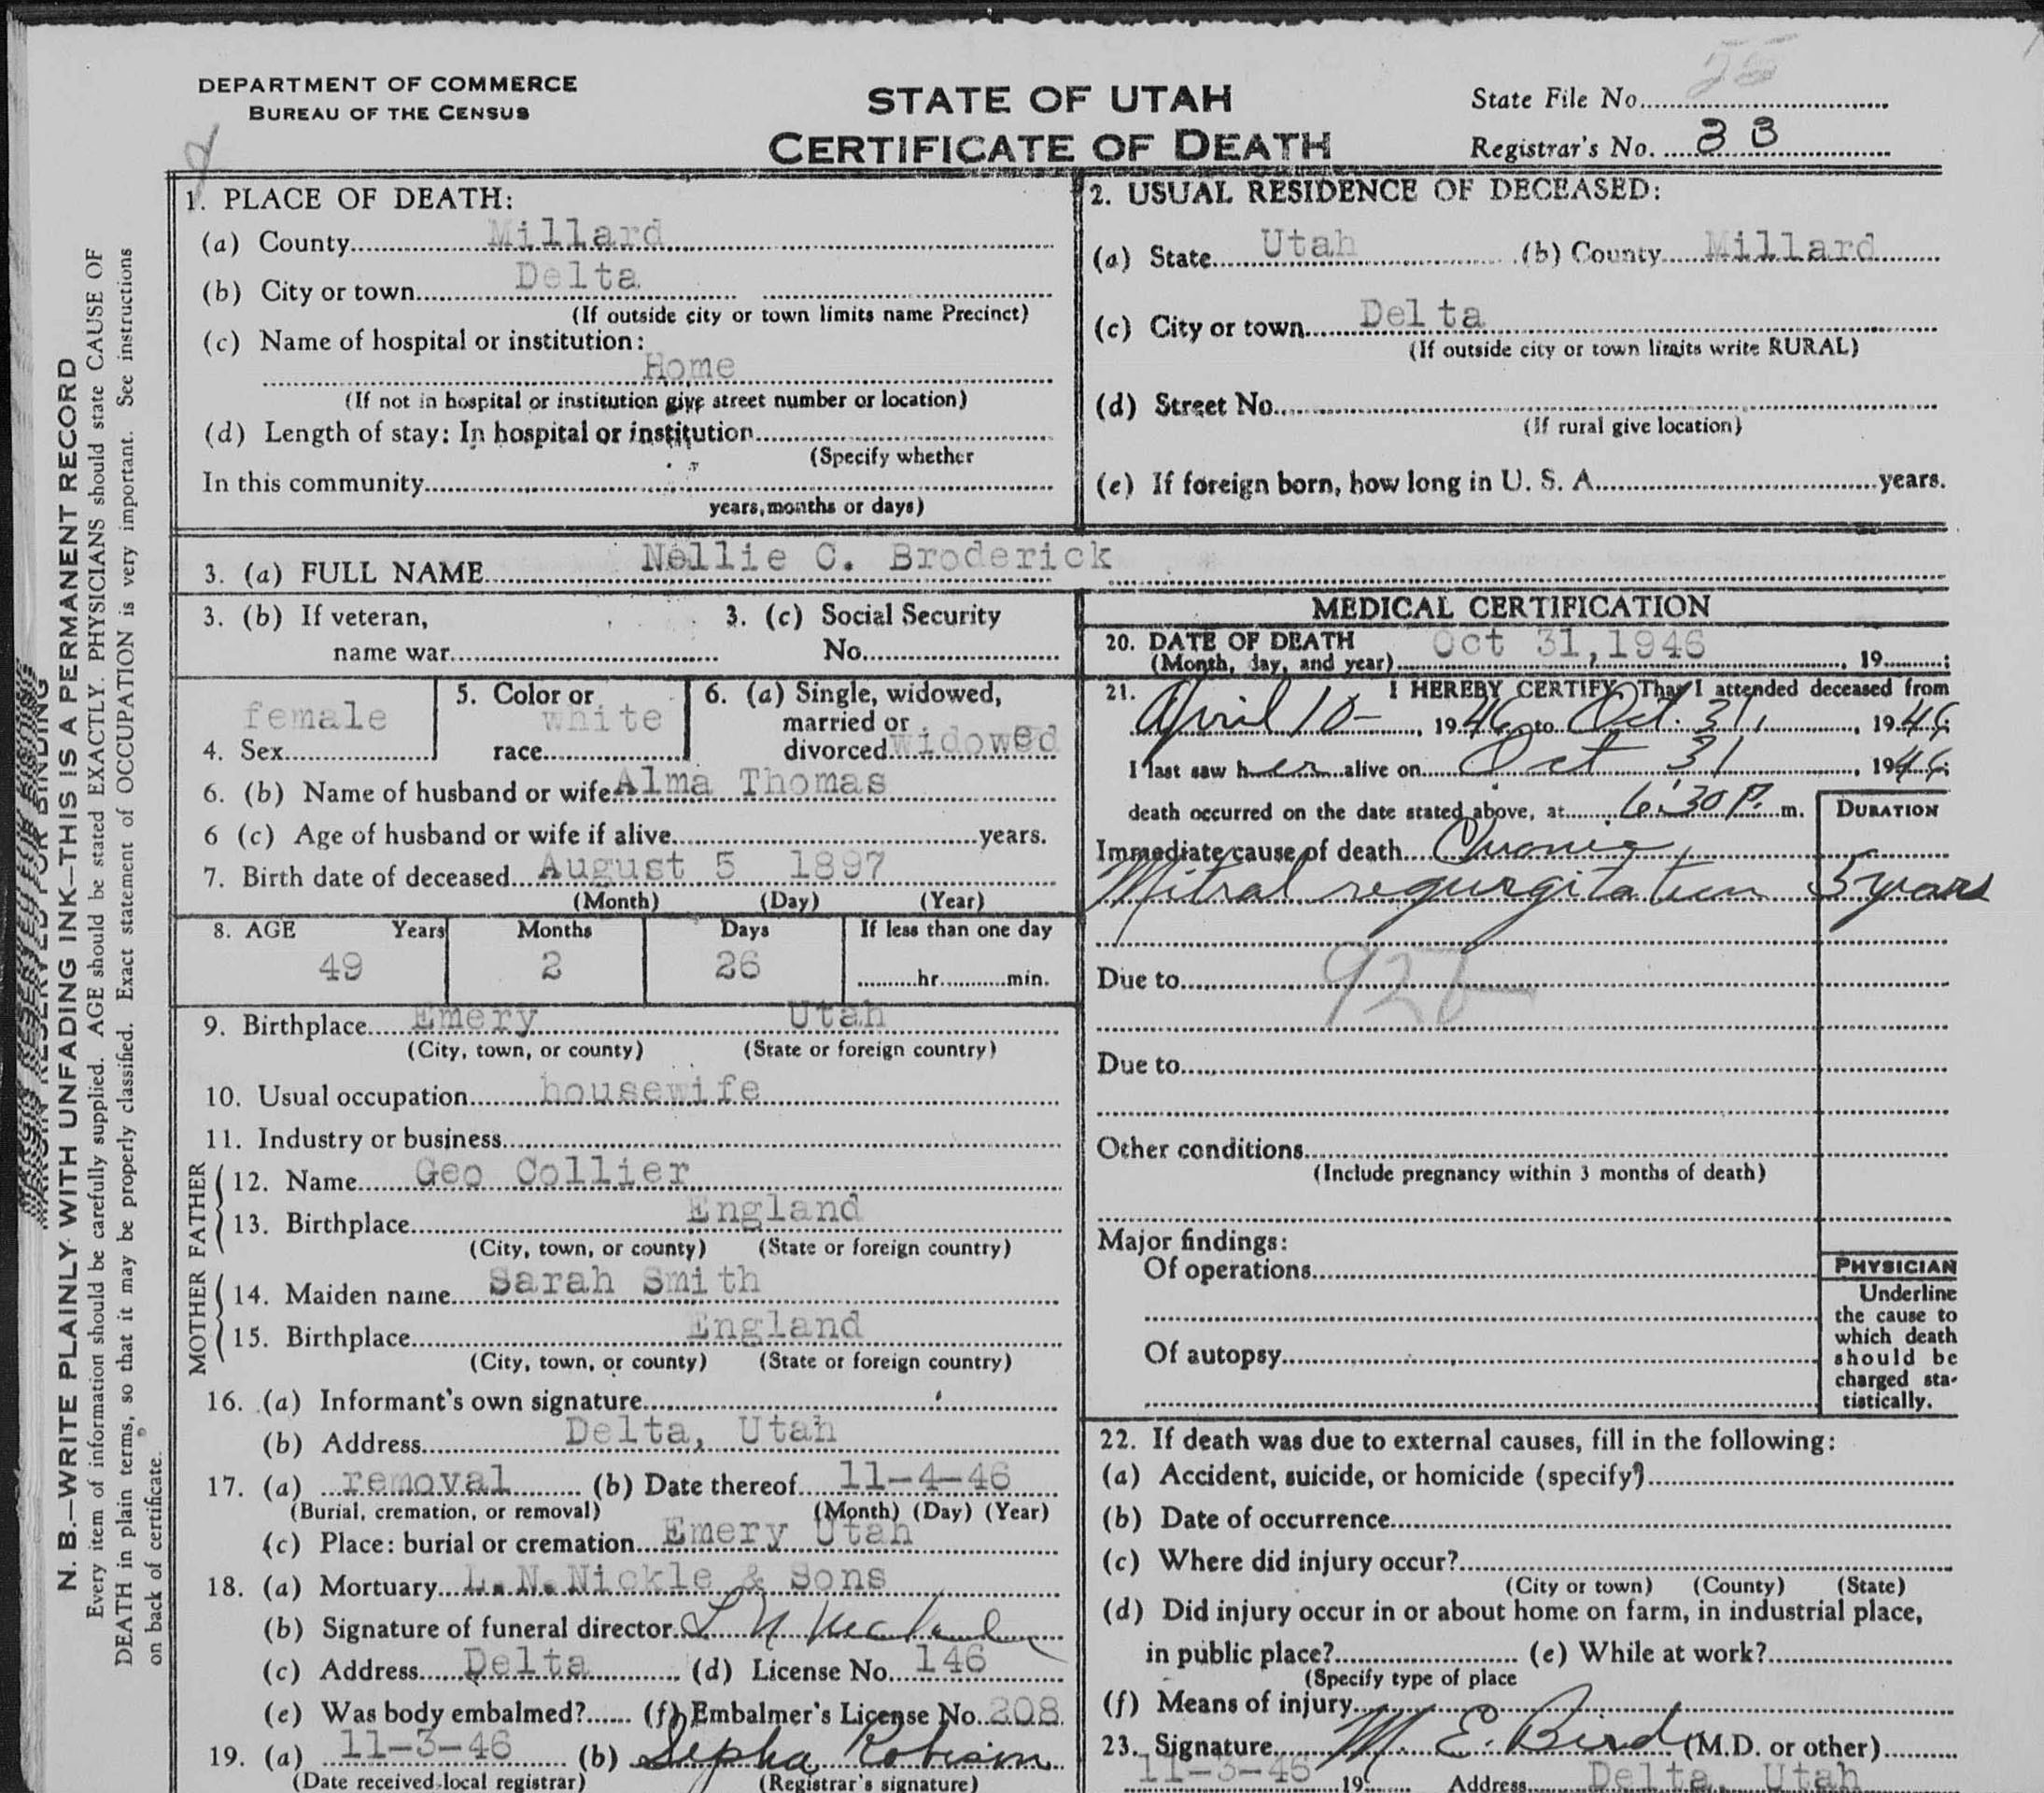 DEPARTMENT OF COMMERCE
BUREAU OF THE CENSUS
STATE OF UTAH
CERTIFICATE OF DEATH
State File No.
Registrar's No. 33
MARGIN RESERVED FOR BINDING
N. B.—WRITE PLAINLY WITH UNFADING INK—THIS IS A PERMANENT RECORD
Every item of information should be carefully supplied. AGE should be stated EXACTLY. PHYSICIANS should state CAUSE OF
DEATH in plain terms, so that it may be properly classified. Exact statement of OCCUPATION is very important. See instructions
on back of certificate.
1. PLACE OF DEATH:
(a) County Millard
(b) City or town Delta
(If outside city or town limits name Precinct)
(c) Name of hospital or institution:
Home
(If not in hospital or institution give street number or location)
(d) Length of stay: In hospital or institution
(Specify whether
In this community
years, months or days)
2. USUAL RESIDENCE OF DECEASED:
(a) State Utah (b) County Millard
(c) City or town Delta
(If outside city or town limits write RURAL)
(d) Street No.
(If rural give location)
(e) If foreign born, how long in U. S. A. years.
3. (a) FULL NAME Nellie C. Broderick
3. (b) If veteran,
name war
3. (c) Social Security
No.
4. Sex female
5. Color or
race white
6. (a) Single, widowed,
married or
divorced widowed
6. (b) Name of husband or wife Alma Thomas
6 (c) Age of husband or wife if alive years.
7. Birth date of deceased August 5 1897
(Month) (Day) (Year)
8. AGE Years Months Days If less than one day
49 2 26 hr. min.
9. Birthplace Emery Utah
(City, town, or county) (State or foreign country)
10. Usual occupation housewife
11. Industry or business
FATHER
12. Name Geo Collier
13. Birthplace England
(City, town, or county) (State or foreign country)
MOTHER
14. Maiden name Sarah Smith
15. Birthplace England
(City, town, or county) (State or foreign country)
16. (a) Informant's own signature
(b) Address Delta, Utah
17. (a) removal (b) Date thereof 11-4-46
(Burial, cremation, or removal) (Month) (Day) (Year)
(c) Place: burial or cremation Emery Utah
18. (a) Mortuary L.N.Nickle & Sons
(b) Signature of funeral director L N
(c) Address Delta (d) License No. 146
(e) Was body embalmed? (f) Embalmer's License No. 208
19. (a) 11-3-46 (b) Sepha Robison
(Date received local registrar) (Registrar's signature)
MEDICAL CERTIFICATION
20. DATE OF DEATH Oct 31,1946
(Month, day, and year) , 19 ;
21. I HEREBY CERTIFY, That I attended deceased from
April 10- , 1946 to Oct. 31, , 1946;
I last saw her alive on Oct 31 , 1946;
death occurred on the date stated above, at 6:30 P. m.
DURATION
Immediate cause of death Chronic
Mitral regurgitation 5 years
Due to
Due to
Other conditions
(Include pregnancy within 3 months of death)
Major findings:
Of operations
Of autopsy
PHYSICIAN
Underline
the cause to
which death
should be
charged sta-
tistically.
22. If death was due to external causes, fill in the following:
(a) Accident, suicide, or homicide (specify)
(b) Date of occurrence
(c) Where did injury occur?
(City or town) (County) (State)
(d) Did injury occur in or about home on farm, in industrial place,
in public place? (e) While at work?
(Specify type of place
(f) Means of injury
23. Signature M. E. Bird (M.D. or other)
11-3-46 19 Address Delta, Utah